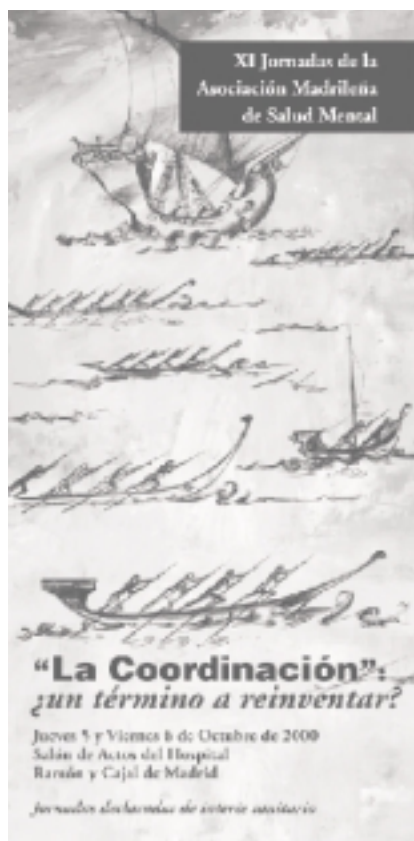 XI Jornadas de la
Asociación Madrileña
de Salud Mental
“La Coordinación”:
¿un término a reinventar?
Jueves 5 y Viernes 6 de Octubre de 2000
Salón de Actos del Hospital
Ramón y Cajal de Madrid
Jornadas declaradas de interés sanitario